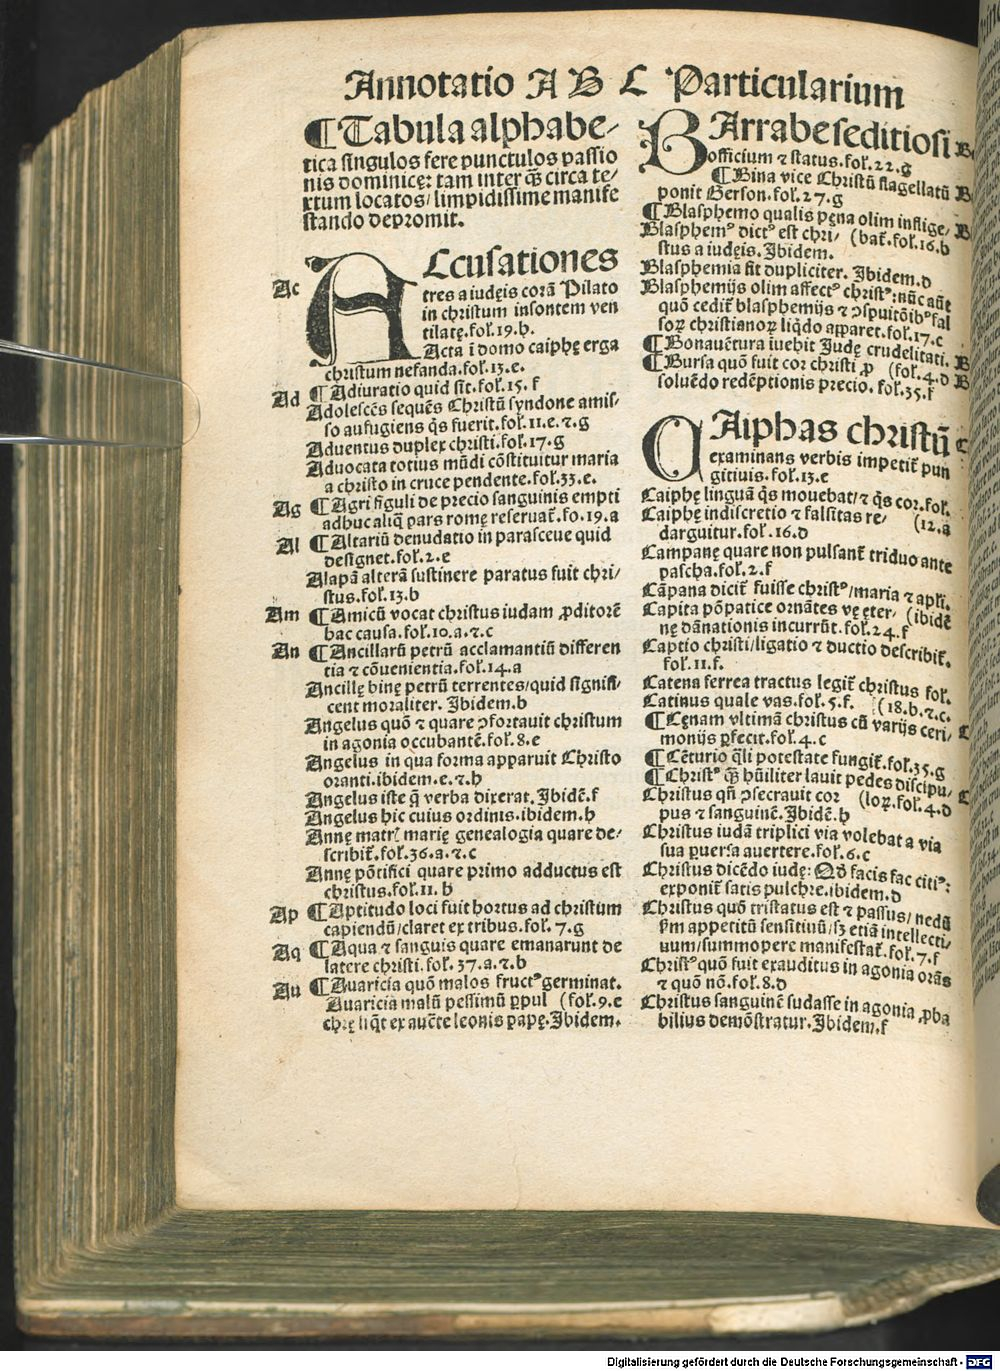 Annotatio A B C Particularium
¶Tabula alphabe-
tica singulos fere punctulos passio
nis dominicę: tam inter q̄ꝫ circa te/
xtum locatos/ limpidissime manife
stando depromit.
Accusationes
Ac tres a iudęis corā Pilato
in christum insontem ven
tilatę.fol.19.h.
Acta ī domo caiphę erga
christum nefanda.fol.13.e.
Ad ¶Adiuratio quid sit.fol.15.f
Adolescēs sequēs Christū syndone amis/
so aufugiens q̄s fuerit.fol.11.e.⁊.g
Aduentus duplex christi.fol.17.g
Aduocata totius mūdi cōstituitur maria
a christo in cruce pendente.fol.33.e.
Ag ¶Agri figuli de precio sanguinis empti
adhuc aliq̄ pars romę reseruat̄.fo.19.a
Al ¶Altariū denudatio in parasceue quid
designet.fol.2.e
Alapā alterā sustinere paratus fuit chri/
stus.fol.13.b
Am ¶Amicū vocat christus iudam ꝓditorē
hac causa.fol.10.a.⁊.c
An ¶Ancillarū petrū acclamantiū differen
tia ⁊ cōuenientia.fol.14.a
Ancillę binę petrū terrentes/quid signifi
cent moraliter. Ibidem.b
Angelus quō ⁊ quare ↄfortauit christum
in agonia occubantē.fol.8.e
Angelus in qua forma apparuit Christo
oranti.ibidem.e.⁊.h
Angelus iste q̄ verba dixerat. Ibidē.f
Angelus hic cuius ordinis.ibidem.h
Annę matr̄ marię genealogia quare de/
scribit̄.fol.36.a.⁊.c
Annę pōtifici quare primo adductus est
christus.fol.11.h
Ap ¶Aptitudo loci fuit hortus ad christum
capiendū/claret ex tribus.fol.7.g
Aq ¶Aqua ⁊ sanguis quare emanarunt de
latere christi.fol.37.a.⁊.b
Au ¶Auaricia quō malos fructꝰ germinat.
Auaricia malū pessimū ꝑpul (fol.9.e
chrę liq̄t ex auctē leonis papę.Ibidem.
BArrabe seditiosi
officium ⁊ status.fol.22.g
¶Bina vice Christū flagellatū
ponit Gerson.fol.27.g
¶Blasphemo qualis pęna olim inflige/
Blasphemꝰ dictꝰ est chri/ (bat̄.fol.16.b
stus a iudęis. Ibidem.
Blasphemia fit dupliciter. Ibidem.d
Blasphemijs olim affectꝰ christꝰ:nūc aūt
quō cedit̄ blasphemijs ⁊ ↄspuitōibꝰ fal
soꝝ christianoꝝ liq̄do apparet.fol.17.c
¶Bonauētura iuehit Judę crudelitati.
¶Bursa quō fuit cor christi ꝓ (fol.4.d
soluēdo redēptionis precio. fol.35.f
CAiphas christū
examinans verbis impetit̄ pun
gitiuis.fol.13.e
Caiphę linguā q̄s mouebat/⁊ q̄s cor.fol.
Caiphę indiscretio ⁊ falsitas re/ (12.a
darguitur.fol.16.d
Campanę quare non pulsant̄ triduo ante
pascha.fol.2.f
Cāpana dicit̄ fuisse christꝰ/maria ⁊ apli.
Capita pōpatice ornātes vę eter/ (ibidē
nę dānationis incurrūt.fol.24.f
Captio christi/ligatio ⁊ ductio describit̄.
fol.11.f.
Catena ferrea tractus legit̄ christus fol.
Catinus quale vas.fol.5.f. (18.b.⁊.c.
¶Cęnam vltimā christus cū varijs ceri/
monijs ꝑfecit.fol.4.c
¶Cēturio q̄li potestate fungit̄.fol.35.g
¶Christꝰ q̄ꝫ hūiliter lauit pedes discipu/
Christus qn̄ ↄsecrauit cor (loꝝ.fol.4.d
pus ⁊ sanguinē. Ibidē.h
Christus iudā triplici via volebat a via
sua ꝑuersa auertere.fol.6.c
Christus dicēdo iudę: Qd̄ facis fac citiꝰ:
exponit̄ satis pulchre.ibidem.d
Christus quō tristatus est ⁊ passus/ nedū
ẜm appetitū sensitiuū/sꝫ etiā intellecti/
uum/summopere manifestat̄. fol.7.f
Christꝰ quō fuit exauditus in agonia orās
⁊ quō nō.fol.8.d
Christus sanguinē sudasse in agonia ꝓba
bilius demōstratur.Ibidem.f
Digitalisierung gefördert durch die Deutsche Forschungsgemeinschaft - DFG